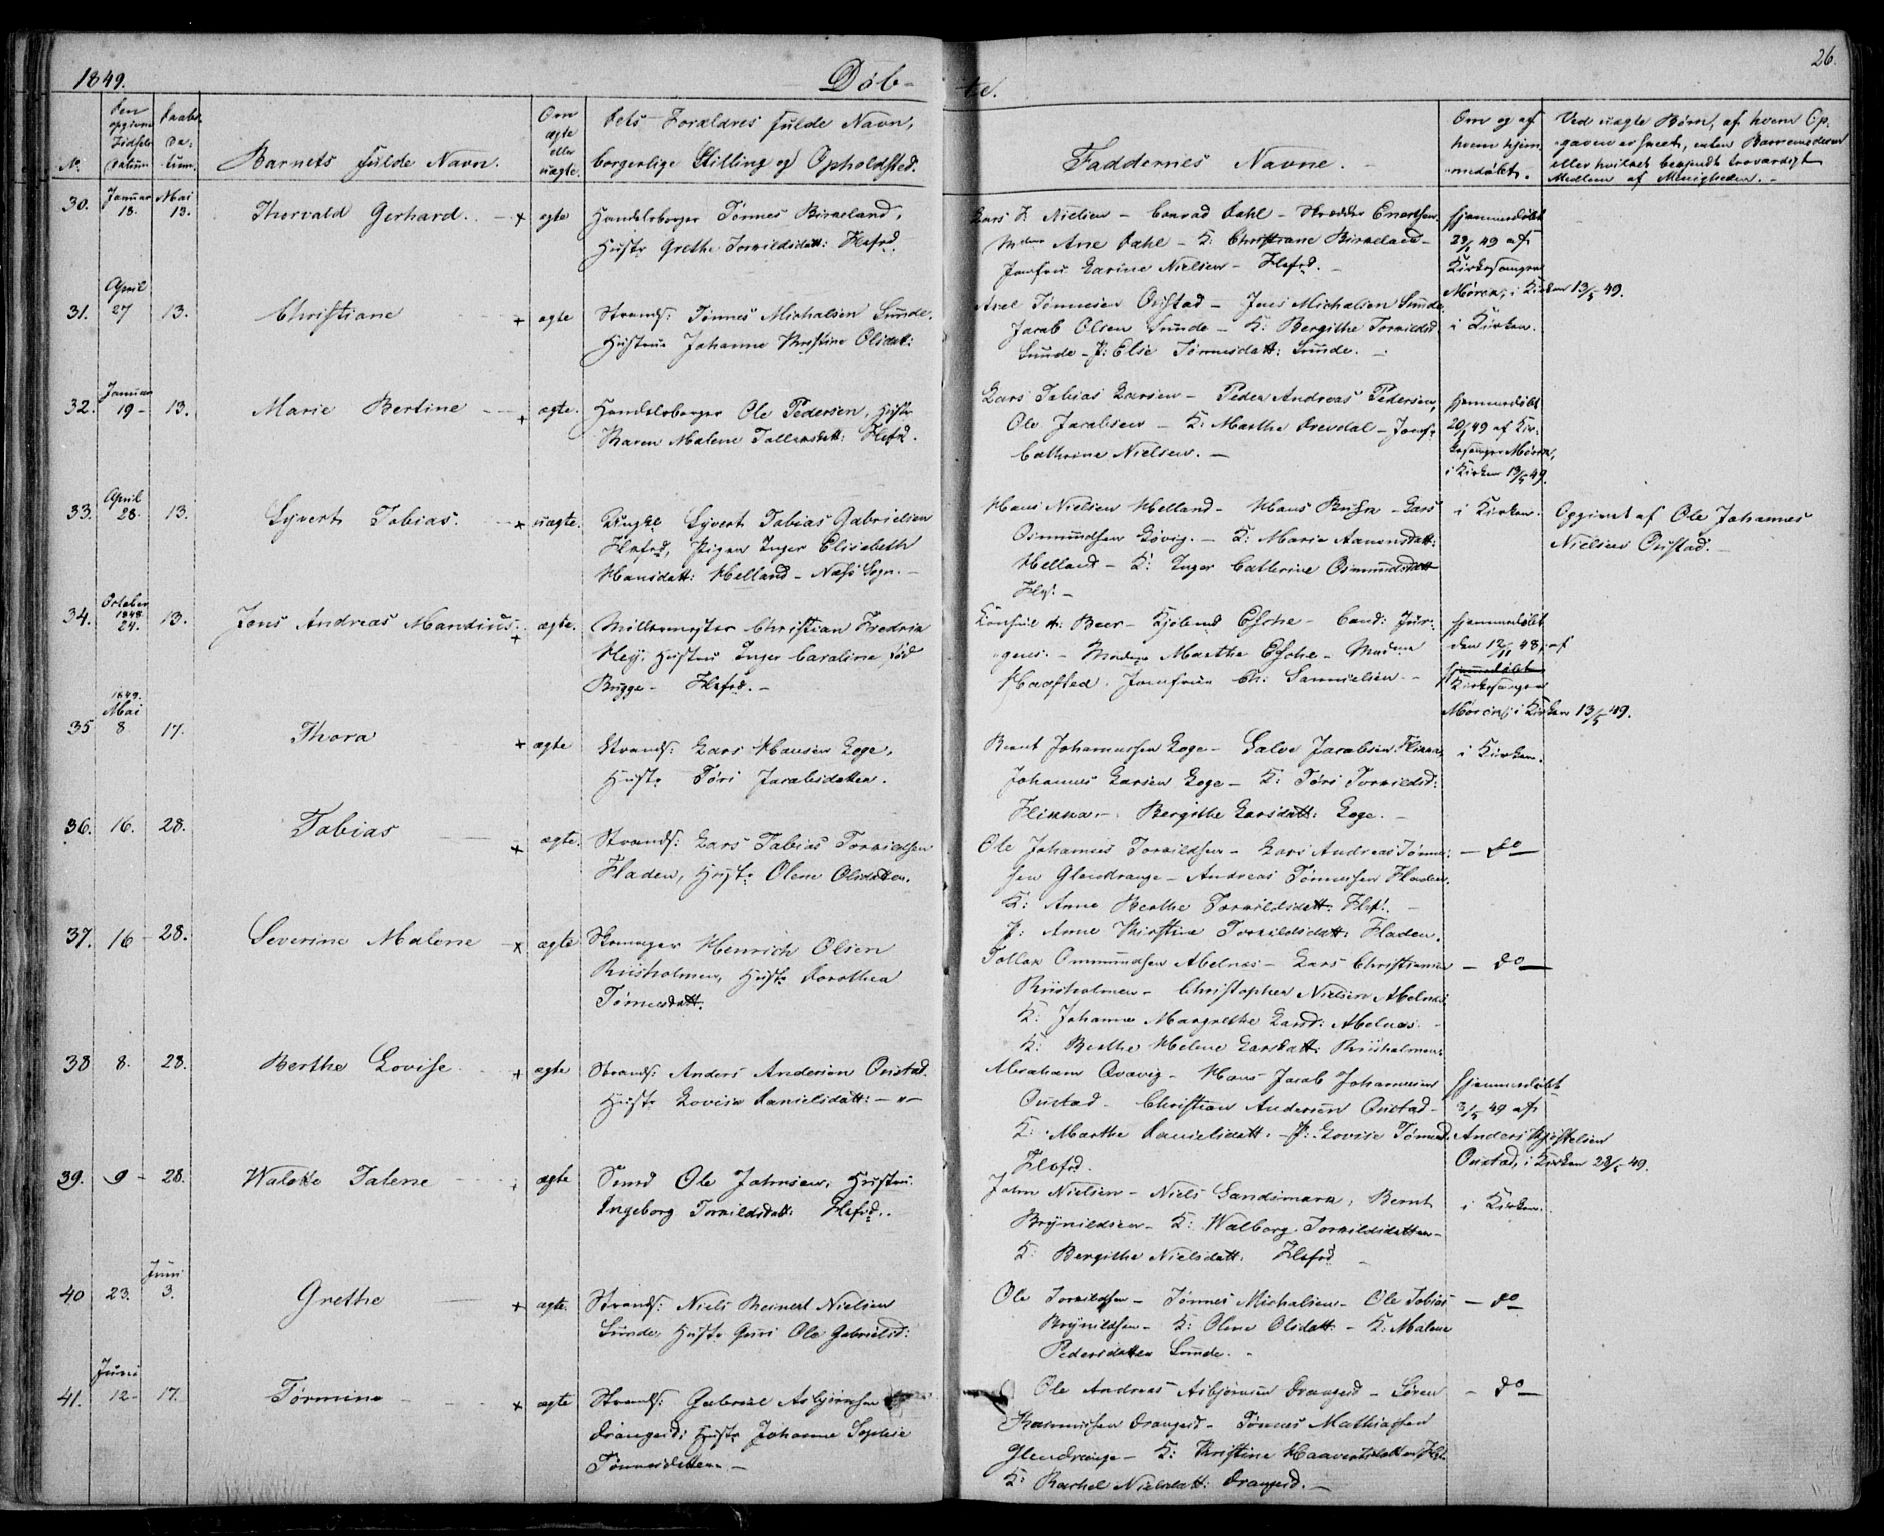 1849.
Døb-
te.
26.
No.
Den opgivne Fødsels datum
Daabs Da: tum.
Barnets fulde Navn.
Om ægte eller uægte.
Dets Forældres fulde Navn,
borgerlige Stilling og Opholdsted.
Faddernes Navne.
Om og af
hvem hjem
medøbt.
Ved uægte Børn, af hvem Op-
gaven er skeet, enten Barnemoderen
eller hvilket bekjendt troværdigt
Medlem af Menigheden.
30. Januar 18. Mai 13. Thorvald Gerhard. + ægte
Handelsborger Tønnes Birkeland,
Hustr Grethe Torkildsdatt: Flefrd.
Lars L. Nielsen - Conrad Dahl - Skrædder Enertsen
Mdme Ane Dahl - K: Christiane Birkeland -
Jomfru Karine Nielsen - Flefrd. -
hjemmedøbt
29/1 49 af
Kirkesanger
Mørck, i Kirken 13/5 49.
31. April 27 13. Christiane + ægte
Strands: Tønnes Michalsen Sunde,
Hustrue Johanne Kirstine Olsdatt:
Axel Tønnesen Østad - Jens Michalsen Sunde
Jacob Olsen Sunde - K: Bergithe Torkildsd
Sunde - P: Elie Tønnesdatt: Sunde. -
i Kirken.
32. Januar 19- 13. Marie Bertine + ægte.
Handelsborger Ole Pedersen, Hustr
Karen Malene Tollaksdatt: Flefrd.
Lars Tobias Larsen - Peder Andreas Pedersen,
Ole Jacobsen - K: Marthe Drevdal - Jomfr
Cathrine Nielsen. -
hjemmedøbt
20/1 49 af Kir-
kesanger Mørck,
i Kirken 13/5 49.
33. April 28. 13. Syvert Tobias. + uægte.
Ungkl Syvert Tobias Gabrielsen
Flefrd, Pigen Inger Elisabeth
Hansdatt: Helland - Næss Sogn. -
Hans Nielsen Helland - Hans Busk - Lars
Osmundsen Gjøvig. - K: Maria Aanensdatt:
Helland - K: Inger Cathrine Osmundsdatt
Flef: -
i Kirken.
Opgivet af Ole Johannes
Nielsen Østad. -
34. October 1848 24. 13. Jens Andreas Mandius. + ægte.
Møllermester Christian Fredrik
Mey, Hustru Inger Caroline, fød
Bugge - Flefrd. -
Konsul A: Beer - Kjøbmd Esche - Cand: Jür-
gens. - Madme Marthe Esche - Madme
Haafsted. Jomfrue Ch: Samuelsen. -
hjemmedøbt
den 12/11 48, af
hjemmedøbt
Kirkesanger
Mørck, i Kirken 13/5 49.
35 1849. Mai 8 17. Thora + ægte
Strands: Lars Hansen Loge,
Hustr Tøri Jacobsdatter.
Bernt Johannessen Loge - Salve Jacobsen Flikka,
Johannes Larsen Loge - K: Tøri Torkildsd:
Flikka. - Bergithe Larsdatt: Loge. -
i Kirken.
36. 16. 28. Tobias + ægte.
Strands: Lars Tobias Torkildsen
Fladen, Hustr Olene Olsdatter.
Ole Johannes Torkildsen - Lars Andreas Tønne:
sen Glendrange - Andreas Tønnessen Fladen.
K: Anne Berthe Torkildsdatt: Flef:. -
P: Anne Kirstine Torkildsdatt: Fladen.
- do -
37. 16 - 28. Severine Malene + ægte
Skomager Henrich Olsen
Riisholmen, Hustr Dorothea
Tønnesdatt.
Tollak Ommundsen Abelnæs - Lars Christiansen
Riisholmen - Christopher Nielsen Abelnæs
K: Johanne Margrethe Lassd: Abelnæs. -
K: Berthe Helene Larsdatt: Riisholmen:
- do -
38 8. 28. Berthe Lovise + ægte
Strands: Anders Andersen Østad.
Hustr Lovise Danielsdatt: - " -
Abraham Qvavig - Hans Jacob Johannesen
Østad - Christian Andersen Østad -
K: Marthe Danielsdatt. - P: Lovise Tønnesd
Flefrd.
hjemmedøbt
3/5 49 af
Anders Kjøstelsen
Østad, i Kirken 28/5 49.
39. 9 - 28. Walette Talene ægte
Smed Ole Johnsen, Hustru.
Ingeborg Torkildsdatt: Flefrd.
John Nielsen - Niels Sandsmark, Bernt
Brynildsen - K: Walborg Torkildsdatter -
K: Bergithe Nielsdatt: Flefrd -
i Kirken.
40 23. Juni 3. Grethe + ægte.
Strands: Niels Reinert Nielsen
Sunde, Hustr Guri Ole Gabrielsd:
Ole Torkildsen - Tønnes Michalsen - Ole Tobias
Brynildsen - K: Olene Olsdatt: - K: Malene
Pedersdatter Sunde. -
- do -
41. Juni 12- 17. Tørmine + ægte
Strands: Gabriel Asbjørnsen
Drangeid, Hustr Johanne Sophie
Tønnesdatter -
Ole Andreas Asbjørnsen Drangeid - Søren
Rasmussen Drangeid - Tønnes Mathiassen
Glendrange - K: Kristine Haavorsdatter Flef:
K: Rachel Nielsdatt: Drangeid. -
- do -